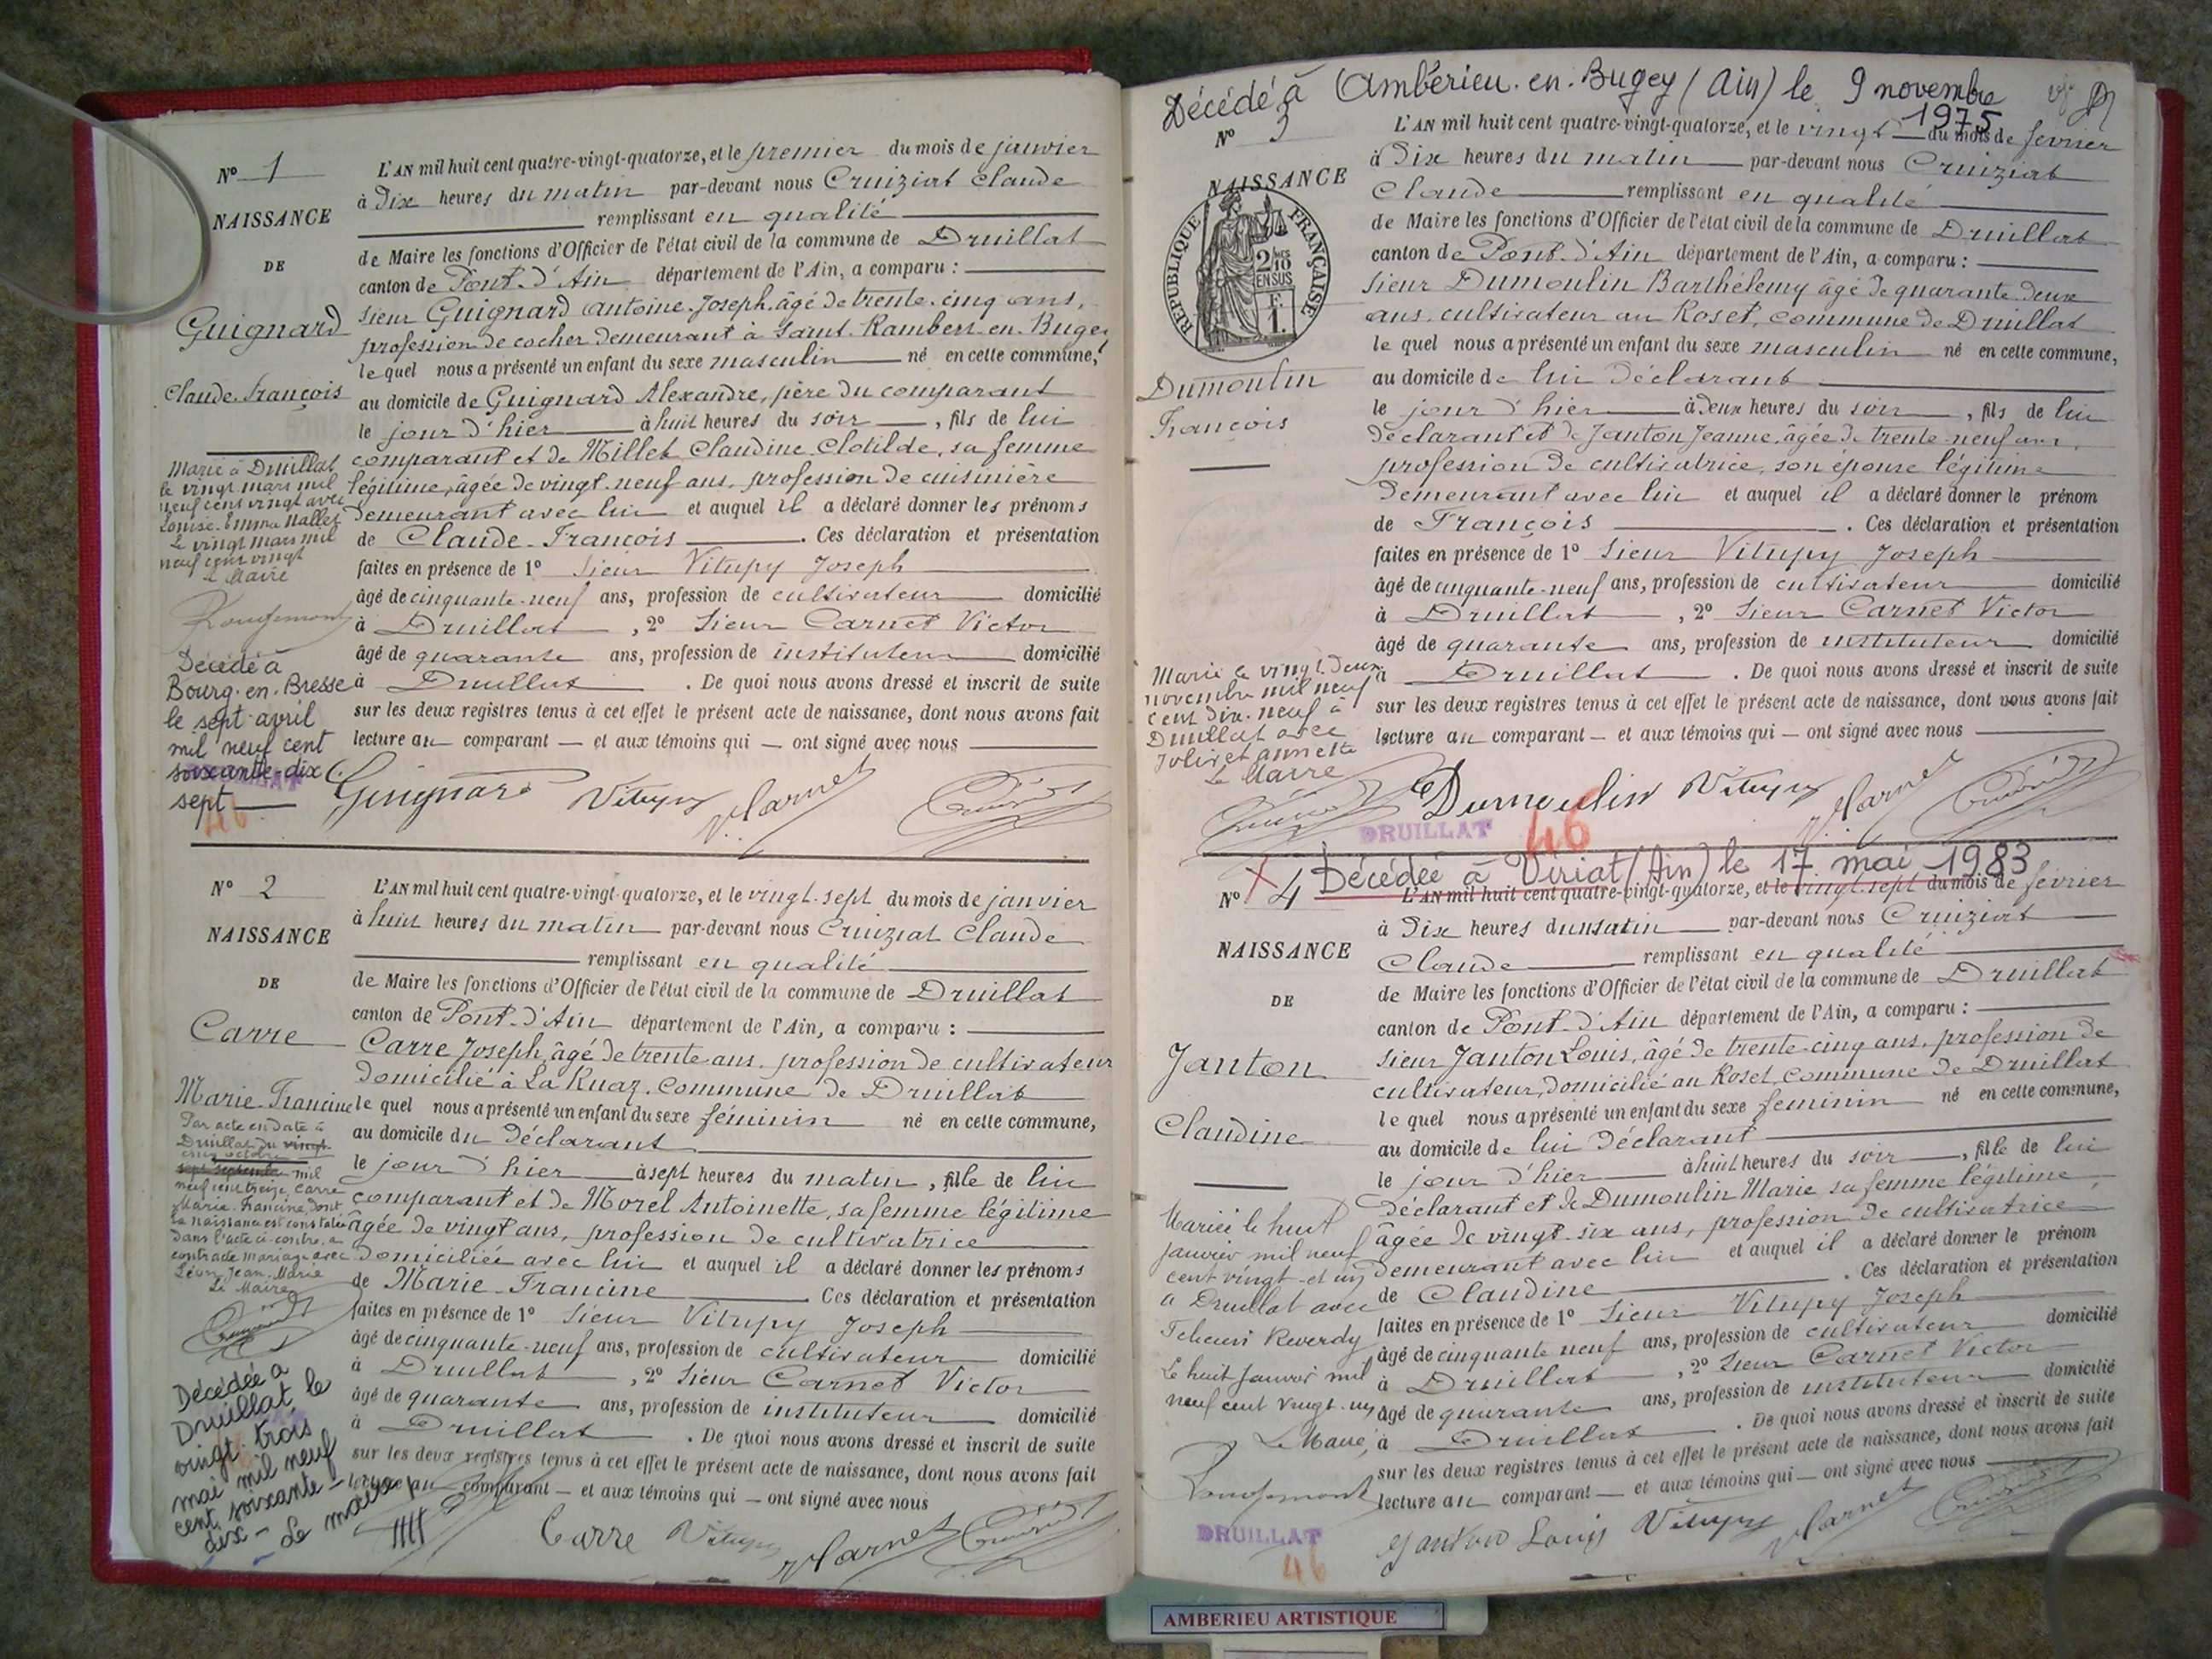 N° 1
NAISSANCE
DE
Guignard
Claude François
Marié à Druillat
le vingt mars mil
neuf cent vingt avec
Louise Emma Mallet
Le vingt mars mil
neuf cent vingt
Le Maire
Rougemont
Décédé à
Bourg-en-Bresse
le sept avril
mil neuf cent
soixante-dix
sept
46
L'AN mil huit cent quatre-vingt-quatorze, et le premier du mois de janvier
à Dix heures du matin par-devant nous Cruiziat Claude
remplissant en qualité
de Maire les fonctions d'Officier de l'état civil de la commune de Druillat
canton de Pont-d'Ain département de l'Ain, a comparu :
sieur Guignard Antoine-Joseph, âgé de trente-cinq ans,
profession de cocher demeurant à Saint-Rambert-en-Bugey
lequel nous a présenté un enfant du sexe masculin né en cette commune,
au domicile de Guignard Alexandre, père du comparant
le jour d'hier à huit heures du soir, fils de lui
comparant et de Millet Claudine Clotilde, sa femme
légitime, âgée de vingt-neuf ans, profession de cuisinière
demeurant avec lui et auquel il a déclaré donner les prénoms
de Claude-François. Ces déclaration et présentation
faites en présence de 1° Sieur Vitupy Joseph
âgé de cinquante-neuf ans, profession de cultivateur domicilié
à Druillat, 2° Sieur Carnet Victor
âgé de quarante ans, profession de instituteur domicilié
à Druillat. De quoi nous avons dressé et inscrit de suite
sur les deux registres tenus à cet effet le présent acte de naissance, dont nous avons fait
lecture au comparant — et aux témoins qui — ont signé avec nous
Guignard Vitupy V. Carnet
N° 2
NAISSANCE
DE
Carre
Marie-Francine
Par acte en date à
Druillat du vingt
cinq octobre
sept septembre mil
neuf cent treize, Carre
Marie-Francine, dont
la naissance est constatée
dans l'acte ci-contre, a
contracté mariage avec
Léon Jean-Marie
Le Maire
Décédée à
Druillat, le
vingt trois
mai mil neuf
cent soixante-
dix - Le maire
L'AN mil huit cent quatre-vingt-quatorze, et le vingt-sept du mois de janvier
à huit heures du matin par-devant nous Cruiziat Claude
remplissant en qualité
de Maire les fonctions d'Officier de l'état civil de la commune de Druillat
canton de Pont-d'Ain département de l'Ain, a comparu :
Carre Joseph, âgé de trente ans, profession de cultivateur
domicilié à La Ruaz, commune de Druillat
lequel nous a présenté un enfant du sexe féminin né en cette commune,
au domicile du déclarant
le jour d'hier à sept heures du matin, fille de lui
comparant et de Morel Antoinette, sa femme légitime
âgée de vingt ans, profession de cultivatrice
domiciliée avec lui et auquel il a déclaré donner les prénoms
de Marie-Francine. Ces déclaration et présentation
faites en présence de 1° Sieur Vitupy Joseph
âgé de cinquante-neuf ans, profession de cultivateur domicilié
à Druillat, 2° Sieur Carnet Victor
âgé de quarante ans, profession de instituteur domicilié
à Druillat. De quoi nous avons dressé et inscrit de suite
sur les deux registres tenus à cet effet le présent acte de naissance, dont nous avons fait
lecture au comparant — et aux témoins qui — ont signé avec nous
Carre Vitupy V. Carnet
Décédé à Ambérieu-en-Bugey (Ain) le 9 novembre
1975
N° 3
NAISSANCE
RÉPUBLIQUE FRANÇAISE
2/10 EN SUS
1 F.
Dumoulin
François
Marié le vingt-deux
novembre mil neuf
cent dix-neuf à
Druillat avec
Jolivet annette
Le Maire
L'AN mil huit cent quatre-vingt-quatorze, et le vingt du mois de février
à Dix heures du matin par-devant nous Cruiziat
Claude remplissant en qualité
de Maire les fonctions d'Officier de l'état civil de la commune de Druillat
canton de Pont-d'Ain département de l'Ain, a comparu :
sieur Dumoulin Barthélemy âgé de quarante-deux
ans, cultivateur au Roset, commune de Druillat
lequel nous a présenté un enfant du sexe masculin né en cette commune,
au domicile de lui déclarant
le jour d'hier à deux heures du soir, fils de lui
déclarant et de Janton Jeanne, âgée de trente-neuf ans,
profession de cultivatrice, son épouse légitime
demeurant avec lui et auquel il a déclaré donner le prénom
de François. Ces déclaration et présentation
faites en présence de 1° Sieur Vitupy Joseph
âgé de cinquante-neuf ans, profession de cultivateur domicilié
à Druillat, 2° Sieur Carnet Victor
âgé de quarante ans, profession de instituteur domicilié
à Druillat. De quoi nous avons dressé et inscrit de suite
sur les deux registres tenus à cet effet le présent acte de naissance, dont nous avons fait
lecture au comparant — et aux témoins qui — ont signé avec nous
Dumoulin Vitupy V. Carnet
DRUILLAT 46
Décédée à Viriat (Ain) le 17 mai 1983
N° 4
NAISSANCE
DE
Janton
Claudine
Mariée le huit
janvier mil neuf
cent vingt-et-un
à Druillat avec
Reverdy
Le huit janvier mil
neuf cent vingt-un
Le Maire,
Rougemont
L'AN mil huit cent quatre-vingt-quatorze, et le vingt-sept du mois de février
à Dix heures du matin par-devant nous Cruiziat
Claude remplissant en qualité
de Maire les fonctions d'Officier de l'état civil de la commune de Druillat
canton de Pont-d'Ain département de l'Ain, a comparu :
sieur Janton Louis, âgé de trente-cinq ans, profession de
cultivateur, domicilié au Roset, commune de Druillat
lequel nous a présenté un enfant du sexe féminin né en cette commune,
au domicile de lui déclarant
le jour d'hier à huit heures du soir, fille de lui
déclarant et de Dumoulin Marie sa femme légitime
âgée de vingt-six ans, profession de cultivatrice
demeurant avec lui et auquel il a déclaré donner le prénom
de Claudine. Ces déclaration et présentation
faites en présence de 1° Sieur Vitupy Joseph
âgé de cinquante neuf ans, profession de cultivateur domicilié
à Druillat, 2° Sieur Carnet Victor
âgé de quarante ans, profession de instituteur domicilié
à Druillat. De quoi nous avons dressé et inscrit de suite
sur les deux registres tenus à cet effet le présent acte de naissance, dont nous avons fait
lecture au comparant — et aux témoins qui — ont signé avec nous
Janton Louis Vitupy V. Carnet
DRUILLAT
46
AMBERIEU ARTISTIQUE